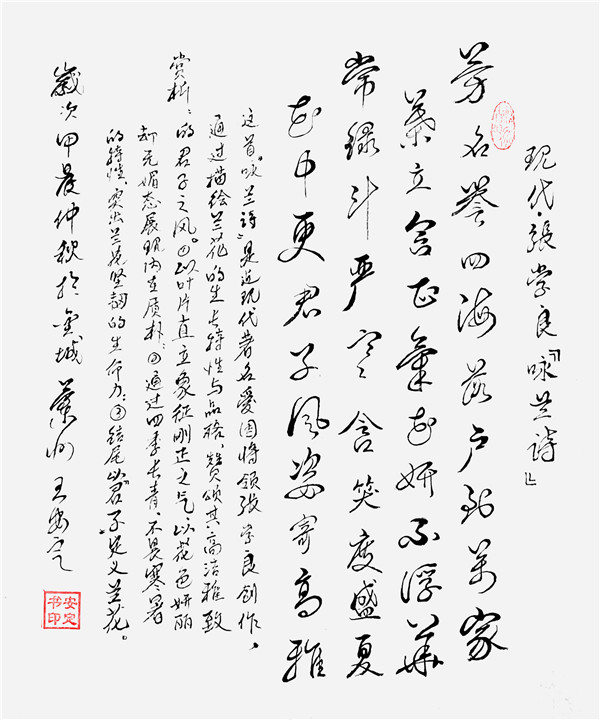 现代·張学良『咏兰詩』
芳名誉四海落户到萬家
葉立含正氣花妍不浮華
常绿斗严寒含笑度盛夏
花中更君子风姿寄高雅
这首"咏兰詩"是近现代著名爱国将领張学良创作、
通过描绘兰花的生长特性与品格、赞颂其高洁雅致
赏析：的君子之风。①以叶片直立象征刚正之气以花色妍丽
却无媚态展现内在质朴；②通过四季长青、不畏寒暑
的特性、突出兰花坚韧的生命力；③结尾以"君子"定义兰花。
歲次甲辰仲秋於金城蘭州王安定
安定书印